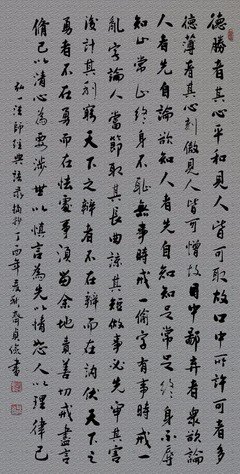 德勝者其心平和見人皆可取故口中所許可者多
德薄者其心刻傲見人皆可憎故目中鄙弃者衆欲論
人者先自論欲知人者先自知知足常足終身不辱
知止常止終身不恥無事時戒一偷字有事時戒一
亂字論人當節取其長曲諒其短做事必先審其害
後計其利窮天下之辯者不在辯而在訥伏天下之
勇者不在勇而在怯處事須留余地責善切戒盡言
脩己以清心為要涉世以慎言為先以情恕人以理律己
弘一法師經典語錄摘抄丁酉年書